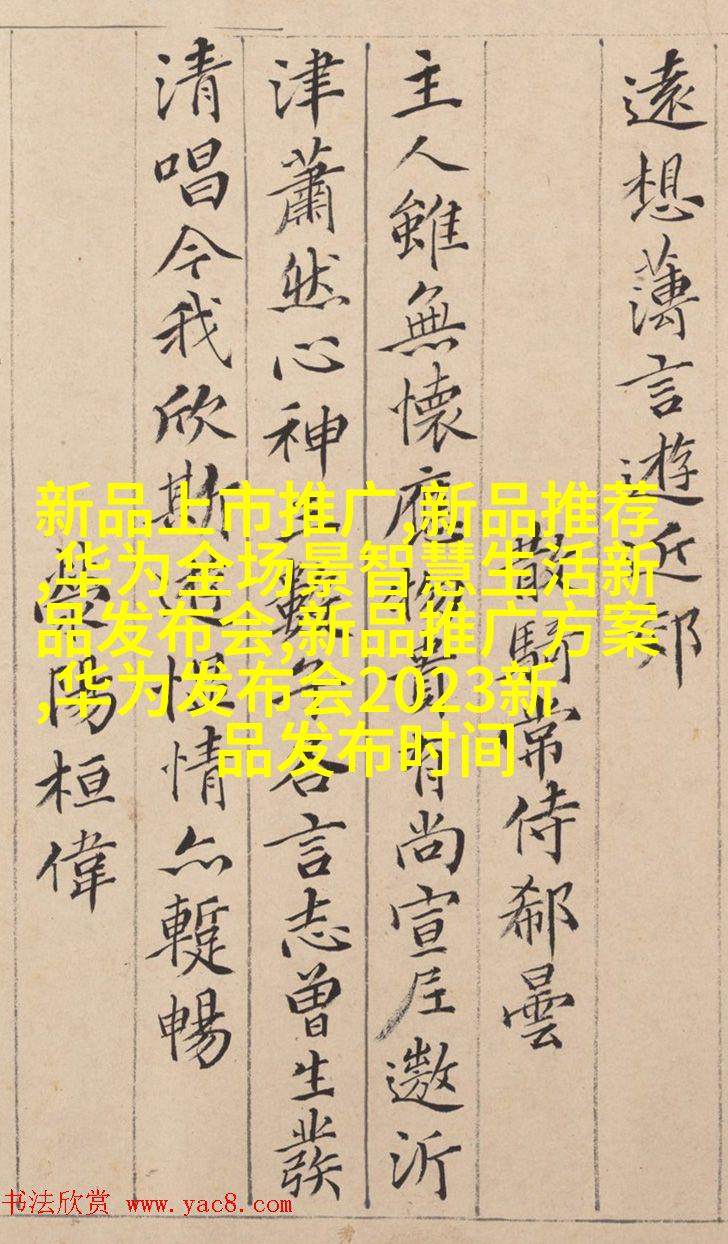 遠想薄言遊近郊
散騎常侍郗曇
主人雖無懷應物貴有尚宣尼遨沂
津蕭然心神王數子各言志曾生發
清唱今我欣斯遊慍情亦蹔暢
滎陽桓偉
新品上市推广,新品推荐
,华为全场景智慧生活新
品发布会,新品推广方案
,华为发布会2023新
品发布时间
书法欣赏 www.yac8.com